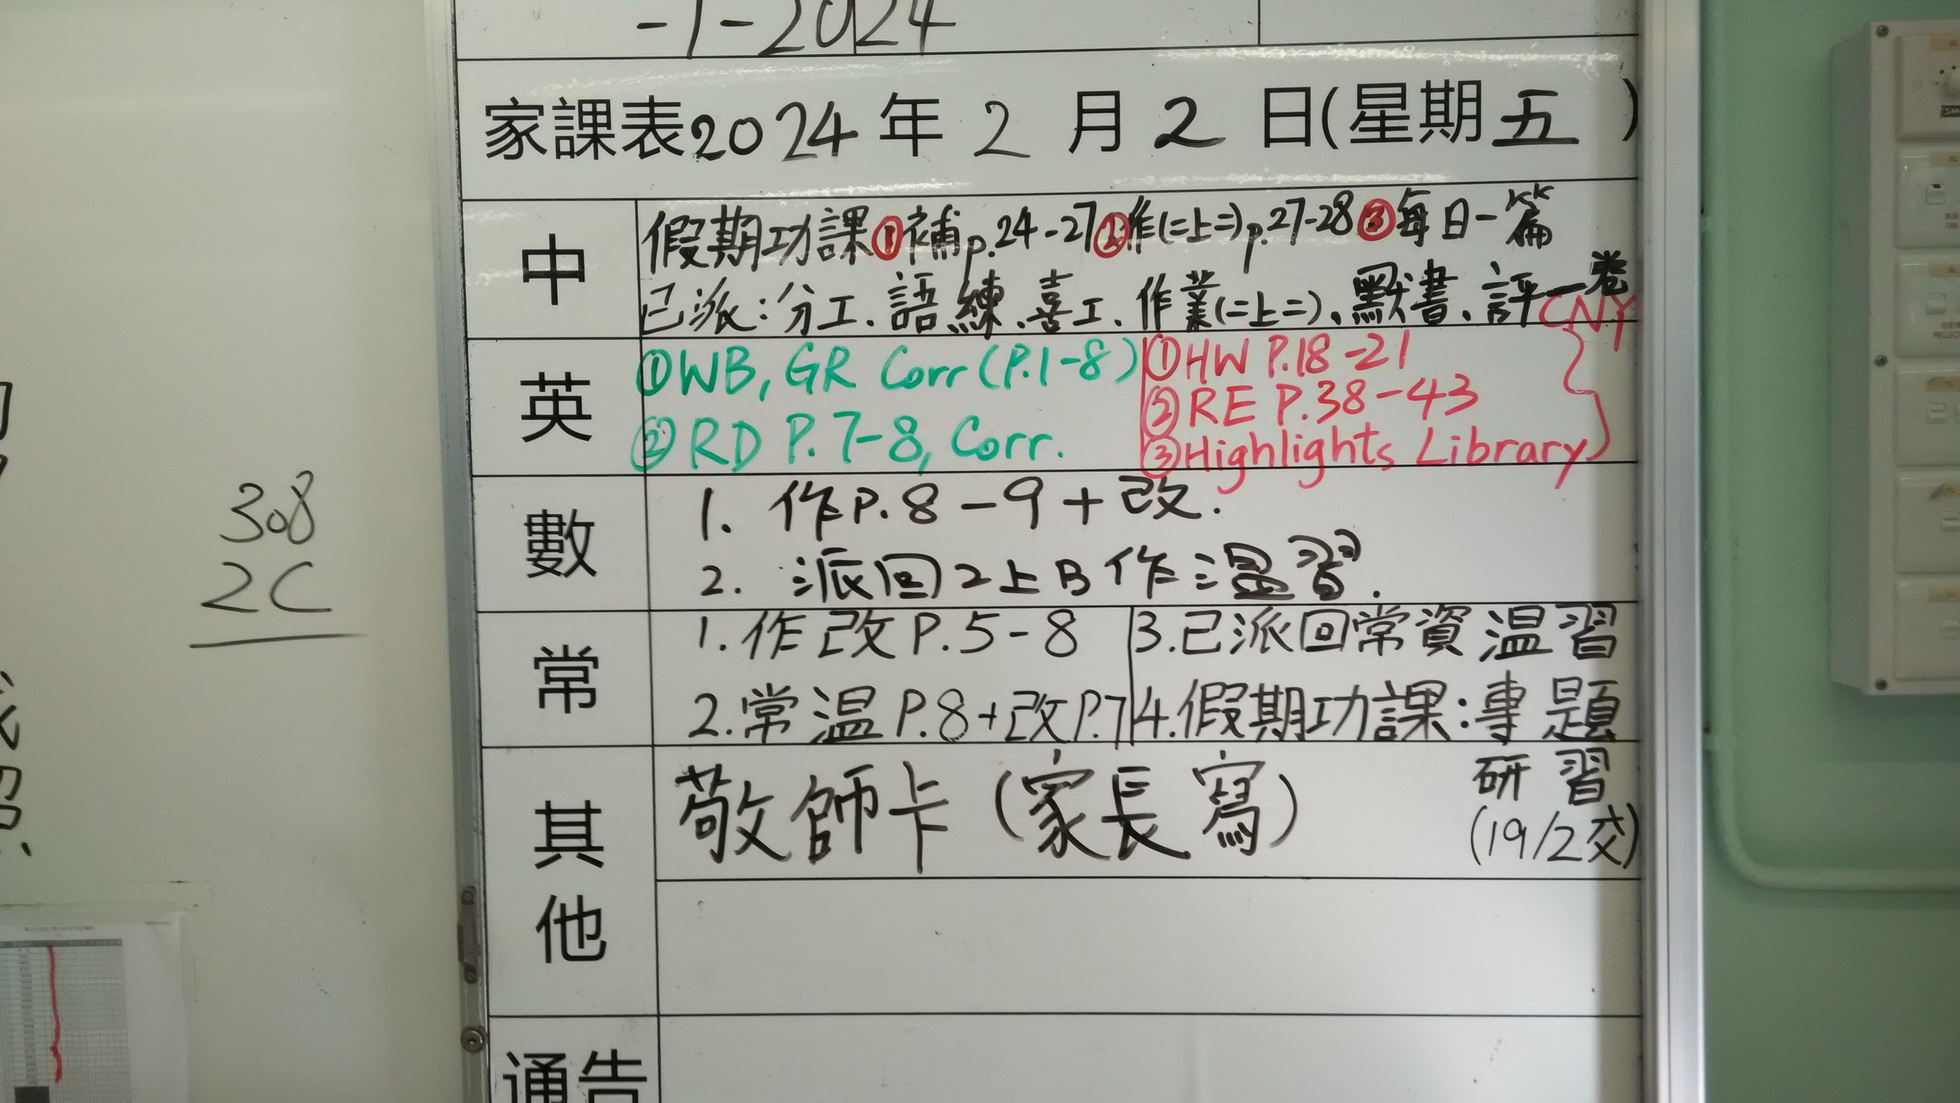 -1-2024
家課表2024年2月2日(星期五)
中
假期功課①補p.24-27②作(二上二)p.27-28③每日一篇
已派:分工、語練、喜工、作業(二上二)、默書、評一卷
英
①WB, GR Corr (P.1-8)
②RD P.7-8, Corr.
CNY
①HW P.18-21
②RE P.38-43
③Highlights Library
數
1. 作P.8-9+改.
2. 派回2上B作溫習.
常
1.作改P.5-8
2.常溫P.8+改P.7
3.已派回常資溫習
4.假期功課:專題
研習
(19/2交)
其他
敬師卡(家長寫)
通告
308
2C